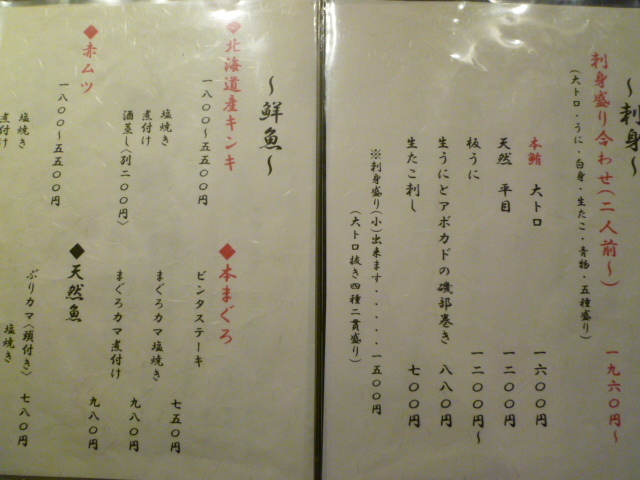 ～刺身～
刺身盛り合わせ(二人前～) 一九六〇円～
(大トロ・うに・白身・生たこ・青物・五種盛り)
本鮪 大トロ 一六〇〇円
天然 平目 一二〇〇円
板うに 一二〇〇円～
生うにとアボカドの磯部巻き 八八〇円
生たこ刺し 七〇〇円
※刺身盛り(小)出来ます・・・・・一五〇〇円
(大トロ抜き四種二貫盛り)
～鮮魚～
◆北海道産キンキ
一八〇〇～五五〇〇円
塩焼き
煮付け
酒蒸し(別二〇〇円)
◆赤ムツ
一八〇〇～五五〇〇円
塩焼き
煮付け
◆本まぐろ
ビンタステーキ 七五〇円
まぐろカマ塩焼き 九八〇円
まぐろカマ煮付け 九八〇円
◆天然魚
ぶりカマ(頭付き) 七八〇円
塩焼き